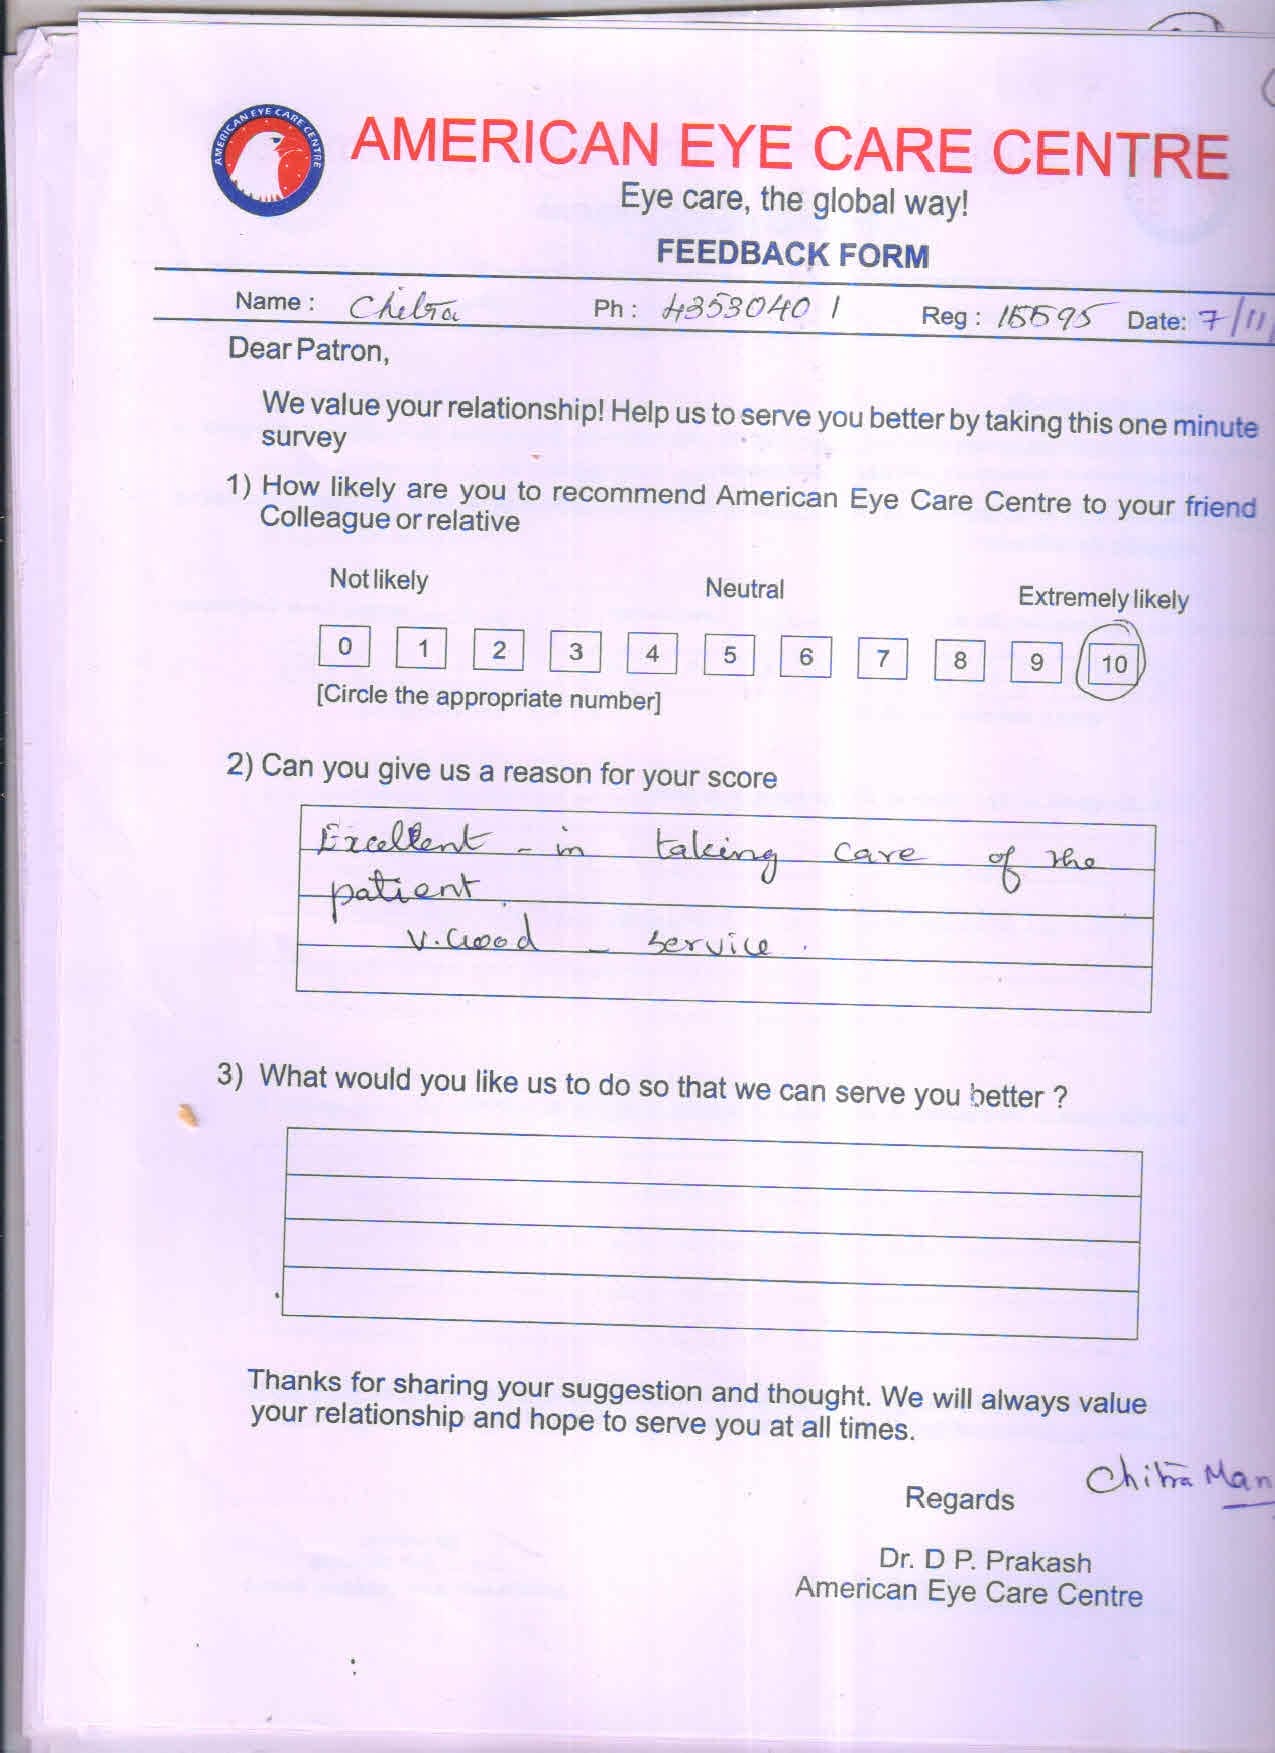 AMERICAN EYE CARE CENTRE
AMERICAN EYE CARE CENTRE
Eye care, the global way!
FEEDBACK FORM
Name : Chitra Ph : 4353040 1 Reg : 15595 Date: 7/11/
Dear Patron,
We value your relationship! Help us to serve you better by taking this one minute
survey
1) How likely are you to recommend American Eye Care Centre to your friend
Colleague or relative
Not likely Neutral Extremely likely
0 1 2 3 4 5 6 7 8 9 10
[Circle the appropriate number]
2) Can you give us a reason for your score
Excellent - in taking care of the
patient.
V. Good - service.
3) What would you like us to do so that we can serve you better ?
Thanks for sharing your suggestion and thought. We will always value
your relationship and hope to serve you at all times.
Chitra Man
Regards
Dr. D P. Prakash
American Eye Care Centre